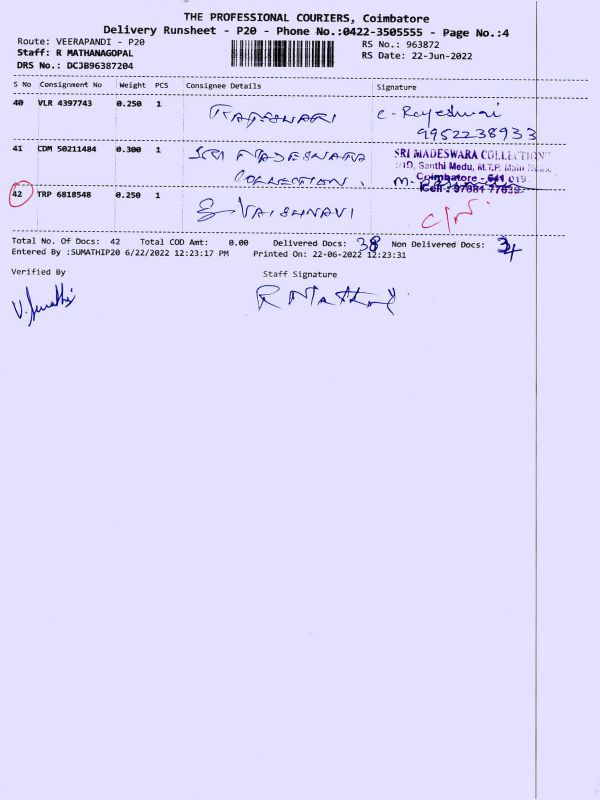 THE PROFESSIONAL COURIERS, Coimbatore
Delivery Runsheet - P20 - Phone No.:0422-3505555 - Page No.:4
Route: VEERAPANDI - P20 RS No.: 963872
Staff: R MATHANAGOPAL RS Date: 22-Jun-2022
DRS No.: DCJB96387204
S No Consignment No Weight PCS Consignee Details Signature
40 VLR 4397743 0.250 1 RAJESWARI C. Rajeshwari
9952238933
41 CDM 50211484 0.300 1 SRI MADESWARA SRI MADESWARA COLLECTION
COLLECTION. Santhi Medu, M.T.P. Main
Coimbatore - 641 019
42 TRP 6818548 0.250 1 S. VAISHNAVI
Total No. Of Docs: 42 Total COD Amt: 0.00 Delivered Docs: 38 Non Delivered Docs: 4
Entered By :SUMATHIP20 6/22/2022 12:23:17 PM Printed On: 22-06-2022 12:23:31
Verified By Staff Signature
V. Sumathi